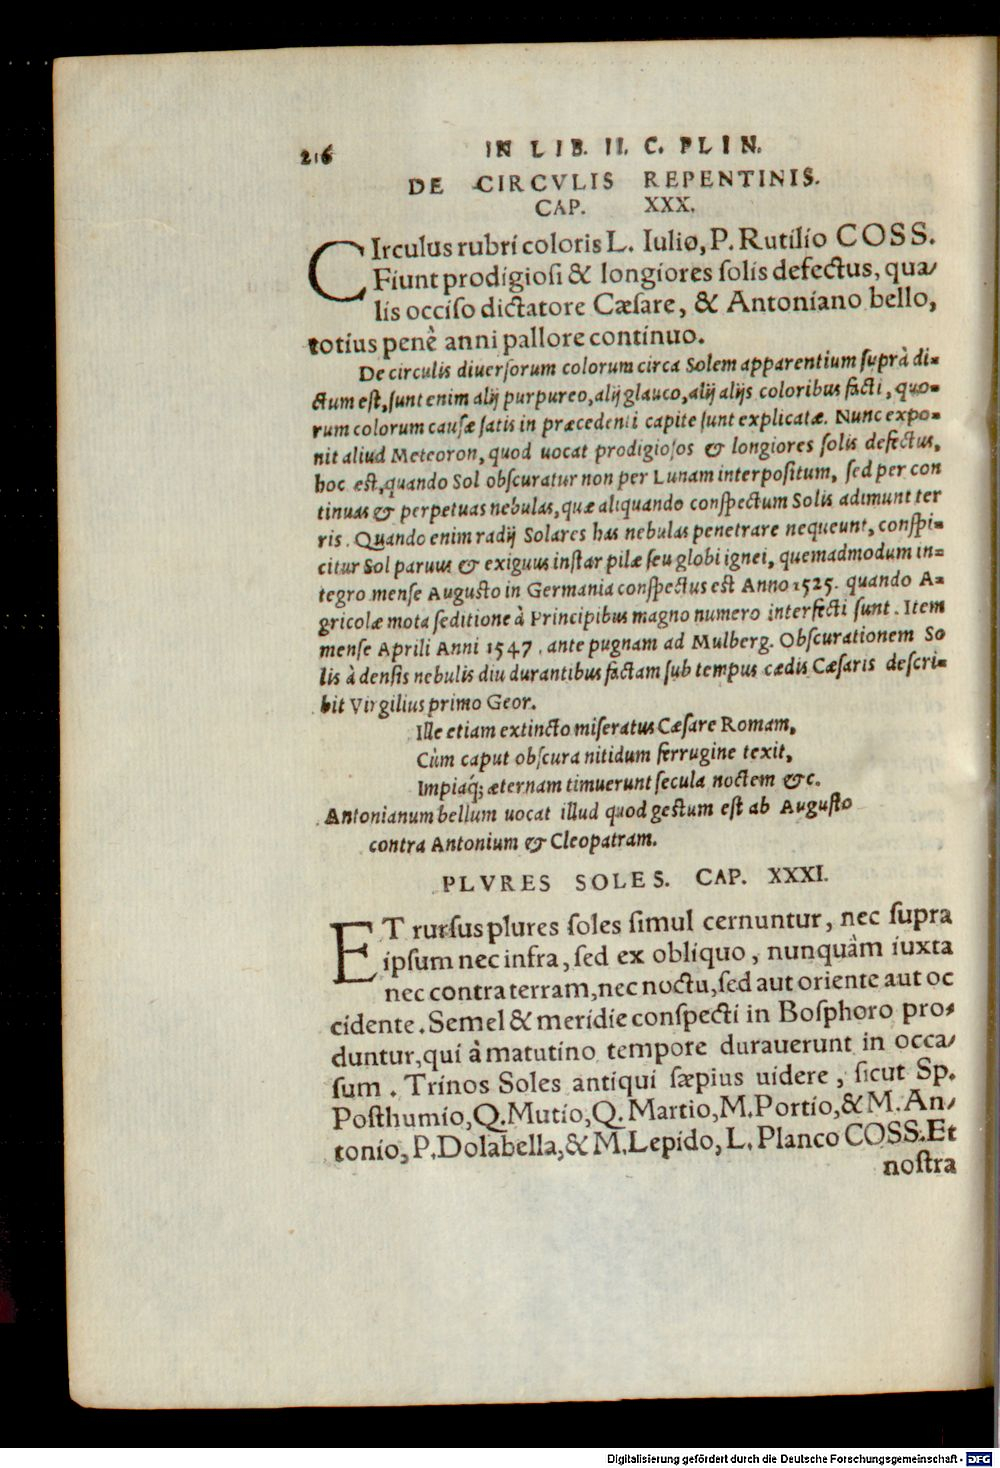 216 IN LIB. II. C. PLIN.
DE CIRCVLIS REPENTINIS.
CAP. XXX.
CIrculus rubri coloris L. Iulio, P. Rutilio COSS.
Fiunt prodigiosi & longiores solis defectus, qua/
lis occiso dictatore Cæsare, & Antoniano bello,
totius penè anni pallore continuo.
De circulis diuersorum colorum circa Solem apparentium suprà di=
ctum est, sunt enim alij purpureo, alij glauco, alij alijs coloribus facti, quo=
rum colorum causæ satis in præcedenti capite sunt explicatæ. Nunc expo=
nit aliud Meteoron, quod uocat prodigiosos & longiores solis defectus,
hoc est, quando Sol obscuratur non per Lunam interpositum, sed per con
tinuas & perpetuas nebulas, quæ aliquando conspectum Solis adimunt ter
ris. Quando enim radij Solares has nebulas penetrare nequeunt, conspi=
citur Sol paruus & exiguus instar pilæ seu globi ignei, quemadmodum in=
tegro mense Augusto in Germania conspectus est Anno 1525. quando A=
gricolæ mota seditione à Principibus magno numero interfecti sunt. Item
mense Aprili Anni 1547. ante pugnam ad Mulberg. Obscurationem So
lis à densis nebulis diu durantibus factam sub tempus cædis Cæsaris descri=
bit Virgilius primo Geor.
Ille etiam extincto miseratus Cæsare Romam,
Cùm caput obscura nitidum ferrugine texit,
Impiaq́; æternam timuerunt secula noctem &c.
Antonianum bellum uocat illud quod gestum est ab Augusto
contra Antonium & Cleopatram.
PLVRES SOLES. CAP. XXXI.
ET rursus plures soles simul cernuntur, nec supra
ipsum nec infra, sed ex obliquo, nunquàm iuxta
nec contra terram, nec noctu, sed aut oriente aut oc
cidente. Semel & meridie conspecti in Bosphoro pro/
duntur, qui à matutino tempore durauerunt in occa/
sum. Trinos Soles antiqui sæpius uidere, sicut Sp.
Posthumio, Q. Mutio, Q. Martio, M. Portio, & M. An/
tonio, P. Dolabella, & M. Lepido, L. Planco COSS. Et
nostra
Digitalisierung gefördert durch die Deutsche Forschungsgemeinschaft - DFG